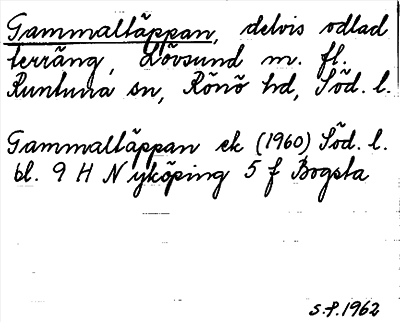 Gammaltäppan, delvis odlad
terräng, Lövsund m. fl.
Runtuna sn, Rönö hd, Söd. l.
Gammaltäppan ek (1960) Söd. l.
bl. 9 H Nyköping 5 f Bogsta
S.P. 1962